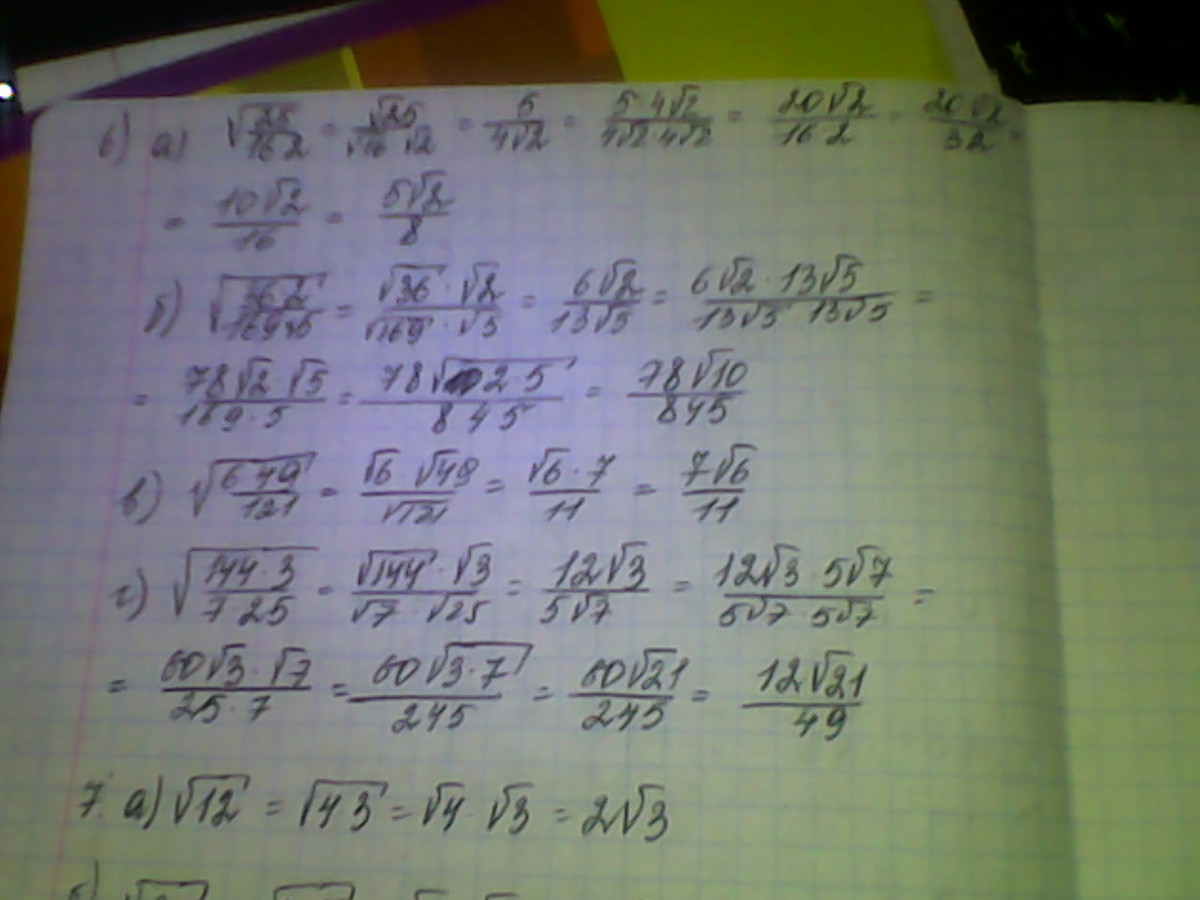 6) а) √(25/(16·2)) = √25/(√16·√2) = 5/(4√2) = (5·4√2)/(4√2·4√2) = 20√2/(16·2) = 20√2/32 =
= 10√2/16 = 5√2/8
б) √((36·2)/(169·5)) = (√36·√2)/(√169·√5) = 6√2/(13√5) = (6√2·13√5)/(13√5·13√5) =
= (78√2·√5)/(169·5) = 78√(2·5)/845 = 78√10/845
в) √((6·49)/121) = (√6·√49)/√121 = (√6·7)/11 = 7√6/11
г) √((144·3)/(7·25)) = (√144·√3)/(√7·√25) = 12√3/(5√7) = (12√3·5√7)/(5√7·5√7) =
= (60√3·√7)/(25·7) = 60√(3·7)/245 = 60√21/245 = 12√21/49
7. а) √12 = √(4·3) = √4·√3 = 2√3